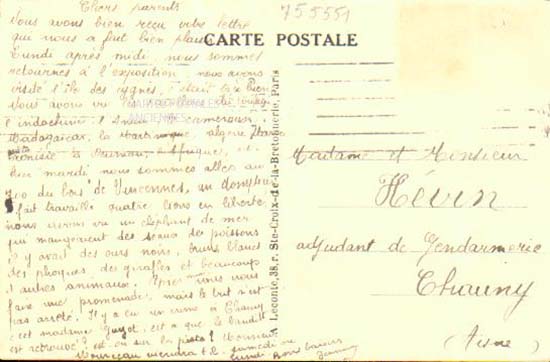 Chers parents
Nous avons bien reçu votre lettre
qui nous a fait bien plaisir.
Lundi après midi, nous sommes
retournés à l'exposition, nous avons
visité l'île des cygnes, c'était très bien
Nous avons vu les
l'indochine cameroun
Madagascar, la Martinique, algérie Maroc
Tunisie
hier mardi nous sommes allés au
zoo du bois de Vincennes, un dompteur
a fait travaillé quatre lions en liberté
nous avons vu un éléphant de mer
qui mangeaient des seaux de poissons
il y avait des ours noirs, bruns, blancs
des phoques, des girafes et beaucoup
d'autres animaux. Après nous
faire une promenade, mais le but n'est
pas arrêté. Il y a eu un crime à Chauny
cet madame Guyot, est a que le bandit
est retrouvé? est-on sur la piste? Monsieur
viendra t-il samedi ou
lundi. Bons baisers
755551
CARTE POSTALE
A Leconte, 38, r. Ste-Croix-de-la-Bretonnerie, Paris
Madame et Monsieur
Hévin
adjudant de Gendarmerie
Chauny
(Aisne)